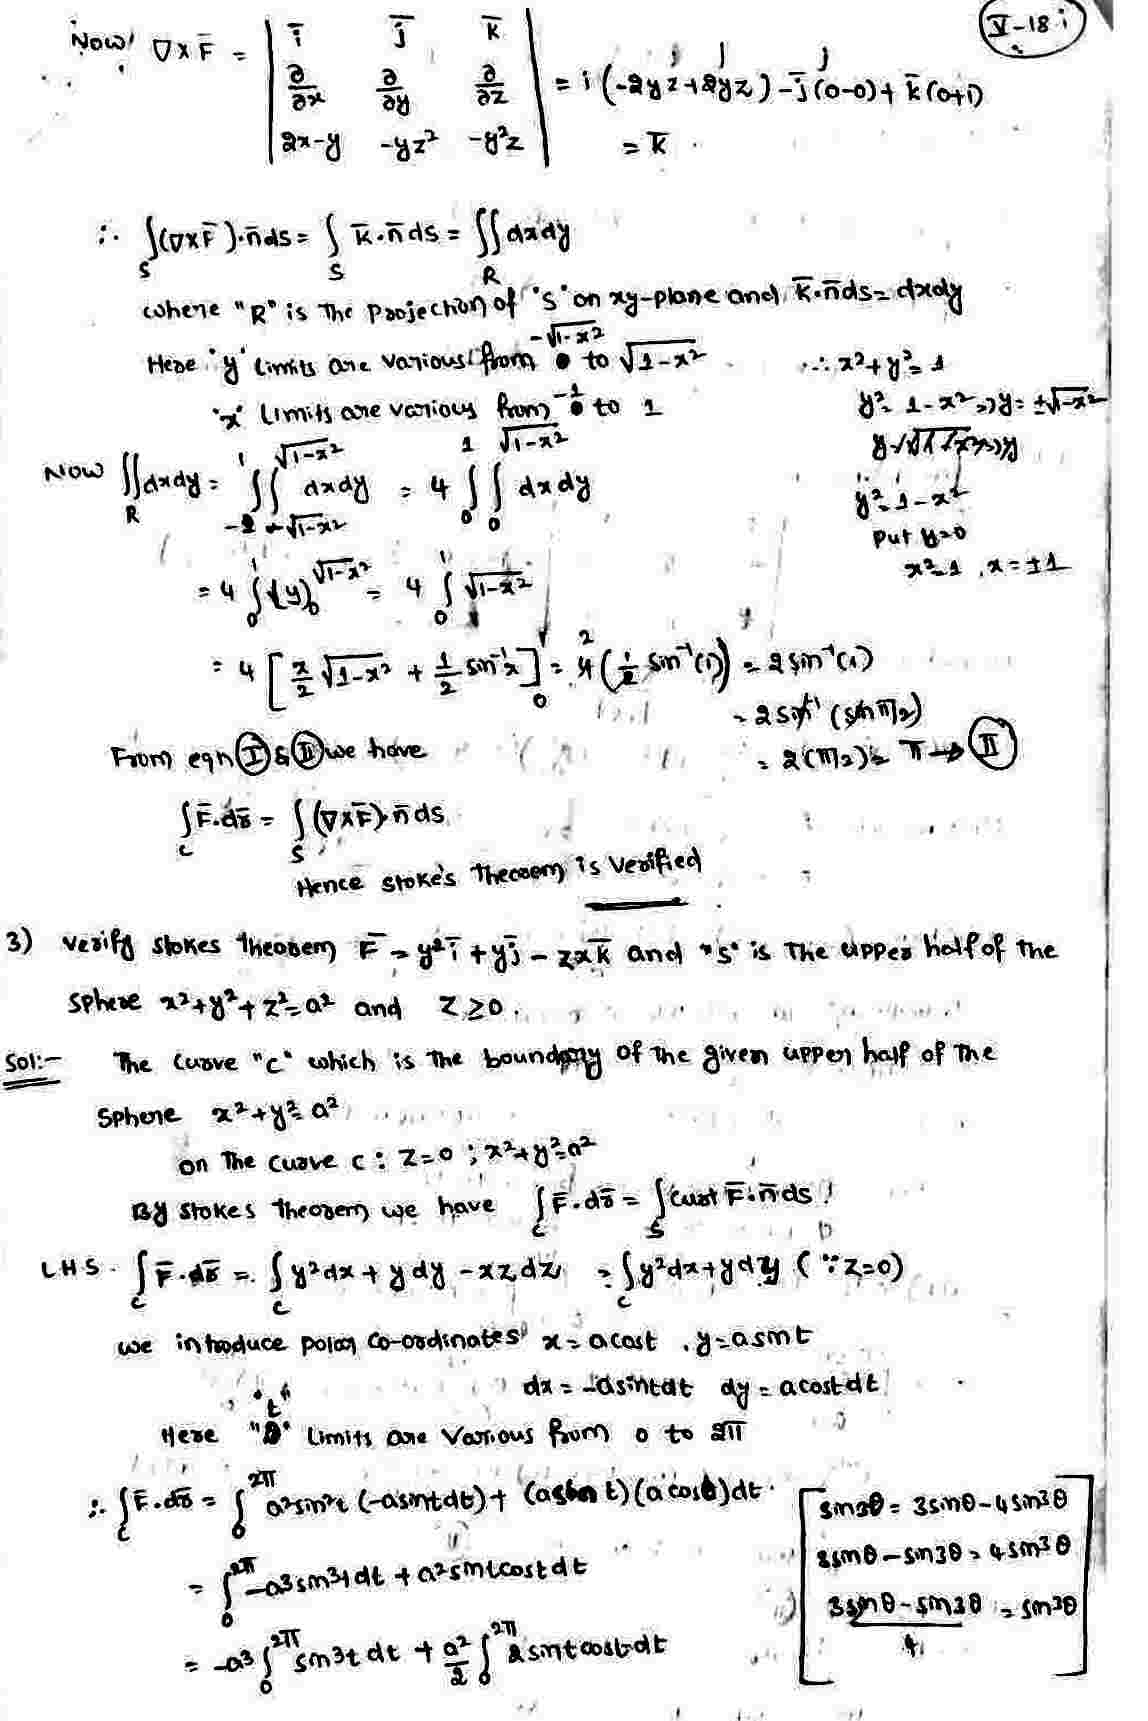 V-18 i
Now! ∇×F̄ = | ī j̄ k̄ |
| ∂/∂x ∂/∂y ∂/∂z | = i(-2yz+2yz) - j̄(0-0) + k̄(0+1)
| 2x-y -yz² -y²z | = k̄.
∴ ∫_S (∇×F̄).n̄ds = ∫_S k̄.n̄ds = ∬_R dxdy
where "R" is the projection of 's' on xy-plane and k̄.n̄ds = dxdy
Here 'y' limits are various from -√1-x² to √1-x² ∴ x²+y²=1
'x' limits are various from -1 to 1 y²=1-x² => y=±√1-x²
Now ∬_R dxdy = ∫_{-1}^{1} ∫_{-√1-x²}^{√1-x²} dxdy = 4 ∫_0^1 ∫_0^{√1-x²} dxdy
y²=1-x²
put y=0
x²=1, x=±1
= 4 ∫_0^1 (y)_0^{√1-x²} = 4 ∫_0^1 √1-x²
= 4 [x/2 √1-x² + 1/2 sin⁻¹x]_0 = 4 (1/2 sin⁻¹(1)) = 2 sin⁻¹(1)
= 2 sin⁻¹ (sin π/2)
From eqn I & II we have = 2(π/2) = π → II
∫_c F̄.dr̄ = ∫_S (∇×F̄).n̄ ds.
Hence stoke's theorem is verified
3) verify stokes theorem F̄ = y²ī + yj̄ - zxk̄ and "s" is The upper half of the
sphere x²+y²+z²=a² and z≥0.
Sol:- The curve "c" which is the boundary of the given upper half of The
sphere x²+y²=a²
on The curve c: z=0; x²+y²=a²
By stokes theorem we have ∫_c F̄.dr̄ = ∫_S curl F̄.n̄ds
L.H.S. ∫_c F̄.dr̄ = ∫_c y²dx + ydy - xzdz = ∫_c y²dx+ydy (∵ z=0)
we introduce polar co-ordinates x=acost, y=asint
dx = -asintdt dy = acostdt
Here "t" limits are various from 0 to 2π
∴ ∫_c F̄.dr̄ = ∫_0^{2π} a²sin²t (-asintdt) + (asin t)(acost)dt.
= ∫_0^{2π} -a³sin³tdt + a²sintcostdt
= -a³ ∫_0^{2π} sin³t dt + a²/2 ∫_0^{2π} 2sintcostdt
sin3θ = 3sinθ-4sin³θ
3sinθ-sin3θ = 4sin³θ
3sinθ-sin3θ/4 = sin³θ